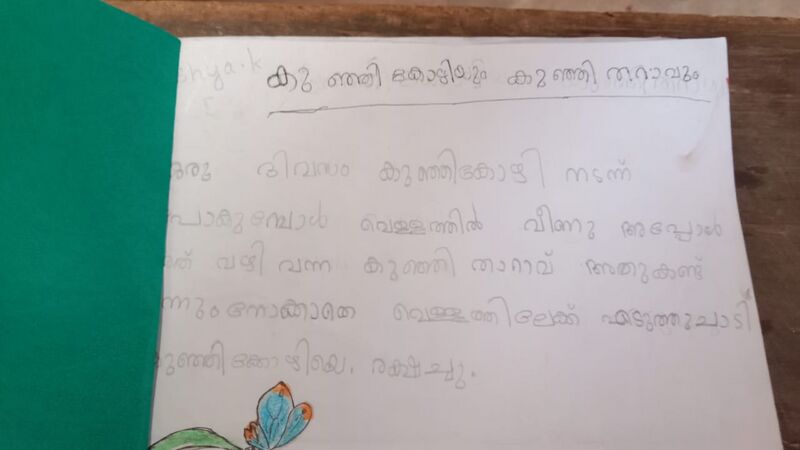 shya.k
കുഞ്ഞികോഴിയും കുഞ്ഞിതറാവും
ഒരു ദിവസം കുഞ്ഞികോഴി നടന്ന്
പോകുമ്പോൾ വെള്ളത്തിൽ വീണു അപ്പോൾ
അത് വഴി വന്ന കുഞ്ഞി താറാവ് അതുകണ്ട്
ഒന്നുംനോക്കാതെ വെള്ളത്തിലേക്ക് എടുത്തുചാടി
കുഞ്ഞിക്കോഴിയെ. രക്ഷച്ചു.